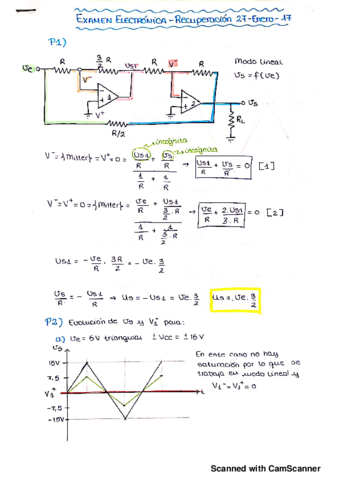 EXAMEN ELECTRÓNICA - Recuperación 27-Enero-17
P1)
R 3/2 R Us1 R V⁻ R Modo lineal
Ue V⁻ Us = f(Ue)
1 2 Us
V⁺ RL
R/2
incógnita
incógnita
V⁻ = {Miller} = V⁺ = 0 = (Us1/R + Us/R) / (1/R + 1/R) → Us1/R + Us/R = 0 [1]
V⁻ = V⁺ = 0 = {Miller} = (Ue/R + Us1/(3/2·R)) / (1/R + 1/(3/2·R)) → Ue/R + 2Us1/3·R = 0 [2]
Us1 = - Ue/R · 3R/2 = - Ue · 3/2
Us/R = - Us1/R → Us = - Us1 = Ue · 3/2 Us = Ue · 3/2
P2) Evolución de Us y V₁⁻ para:
a) Ue = 5V triangular ± Vcc = ± 15V
Us
15
7,5
V₁⁺
-7,5
-15V
En este caso no hay
saturación por lo que se
trabaja en modo lineal y
V₁⁻ = V₁⁺ = 0
Scanned with CamScanner